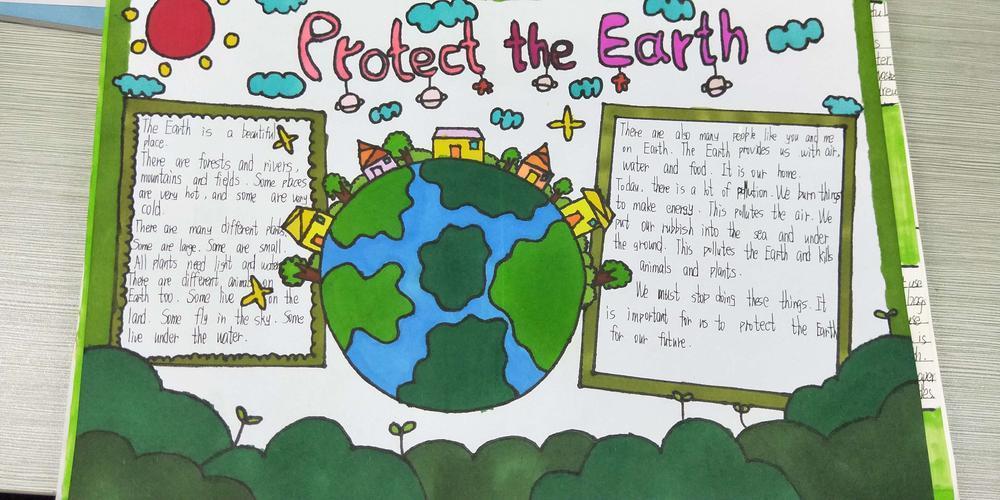 Protect the Earth
The Earth is a beautiful
place.
There are forests and rivers,
mountains and fields. Some places
are very hot, and some are very
cold.
There are many different plants.
Some are large. Some are small.
All plants need light and water.
There are different animals on
Earth too. Some live on the
land. Some fly in the sky. Some
live under the water.
There are also many people like you and me
on Earth. The Earth provides us with air,
water and food. It is our home.
Today, there is a lot of pollution. We burn things
to make energy. This pollutes the air. We
put our rubbish into the sea and under
the ground. This pollutes the Earth and kills
animals and plants.
We must stop doing these things. It
is important for us to protect the Earth
for our future.